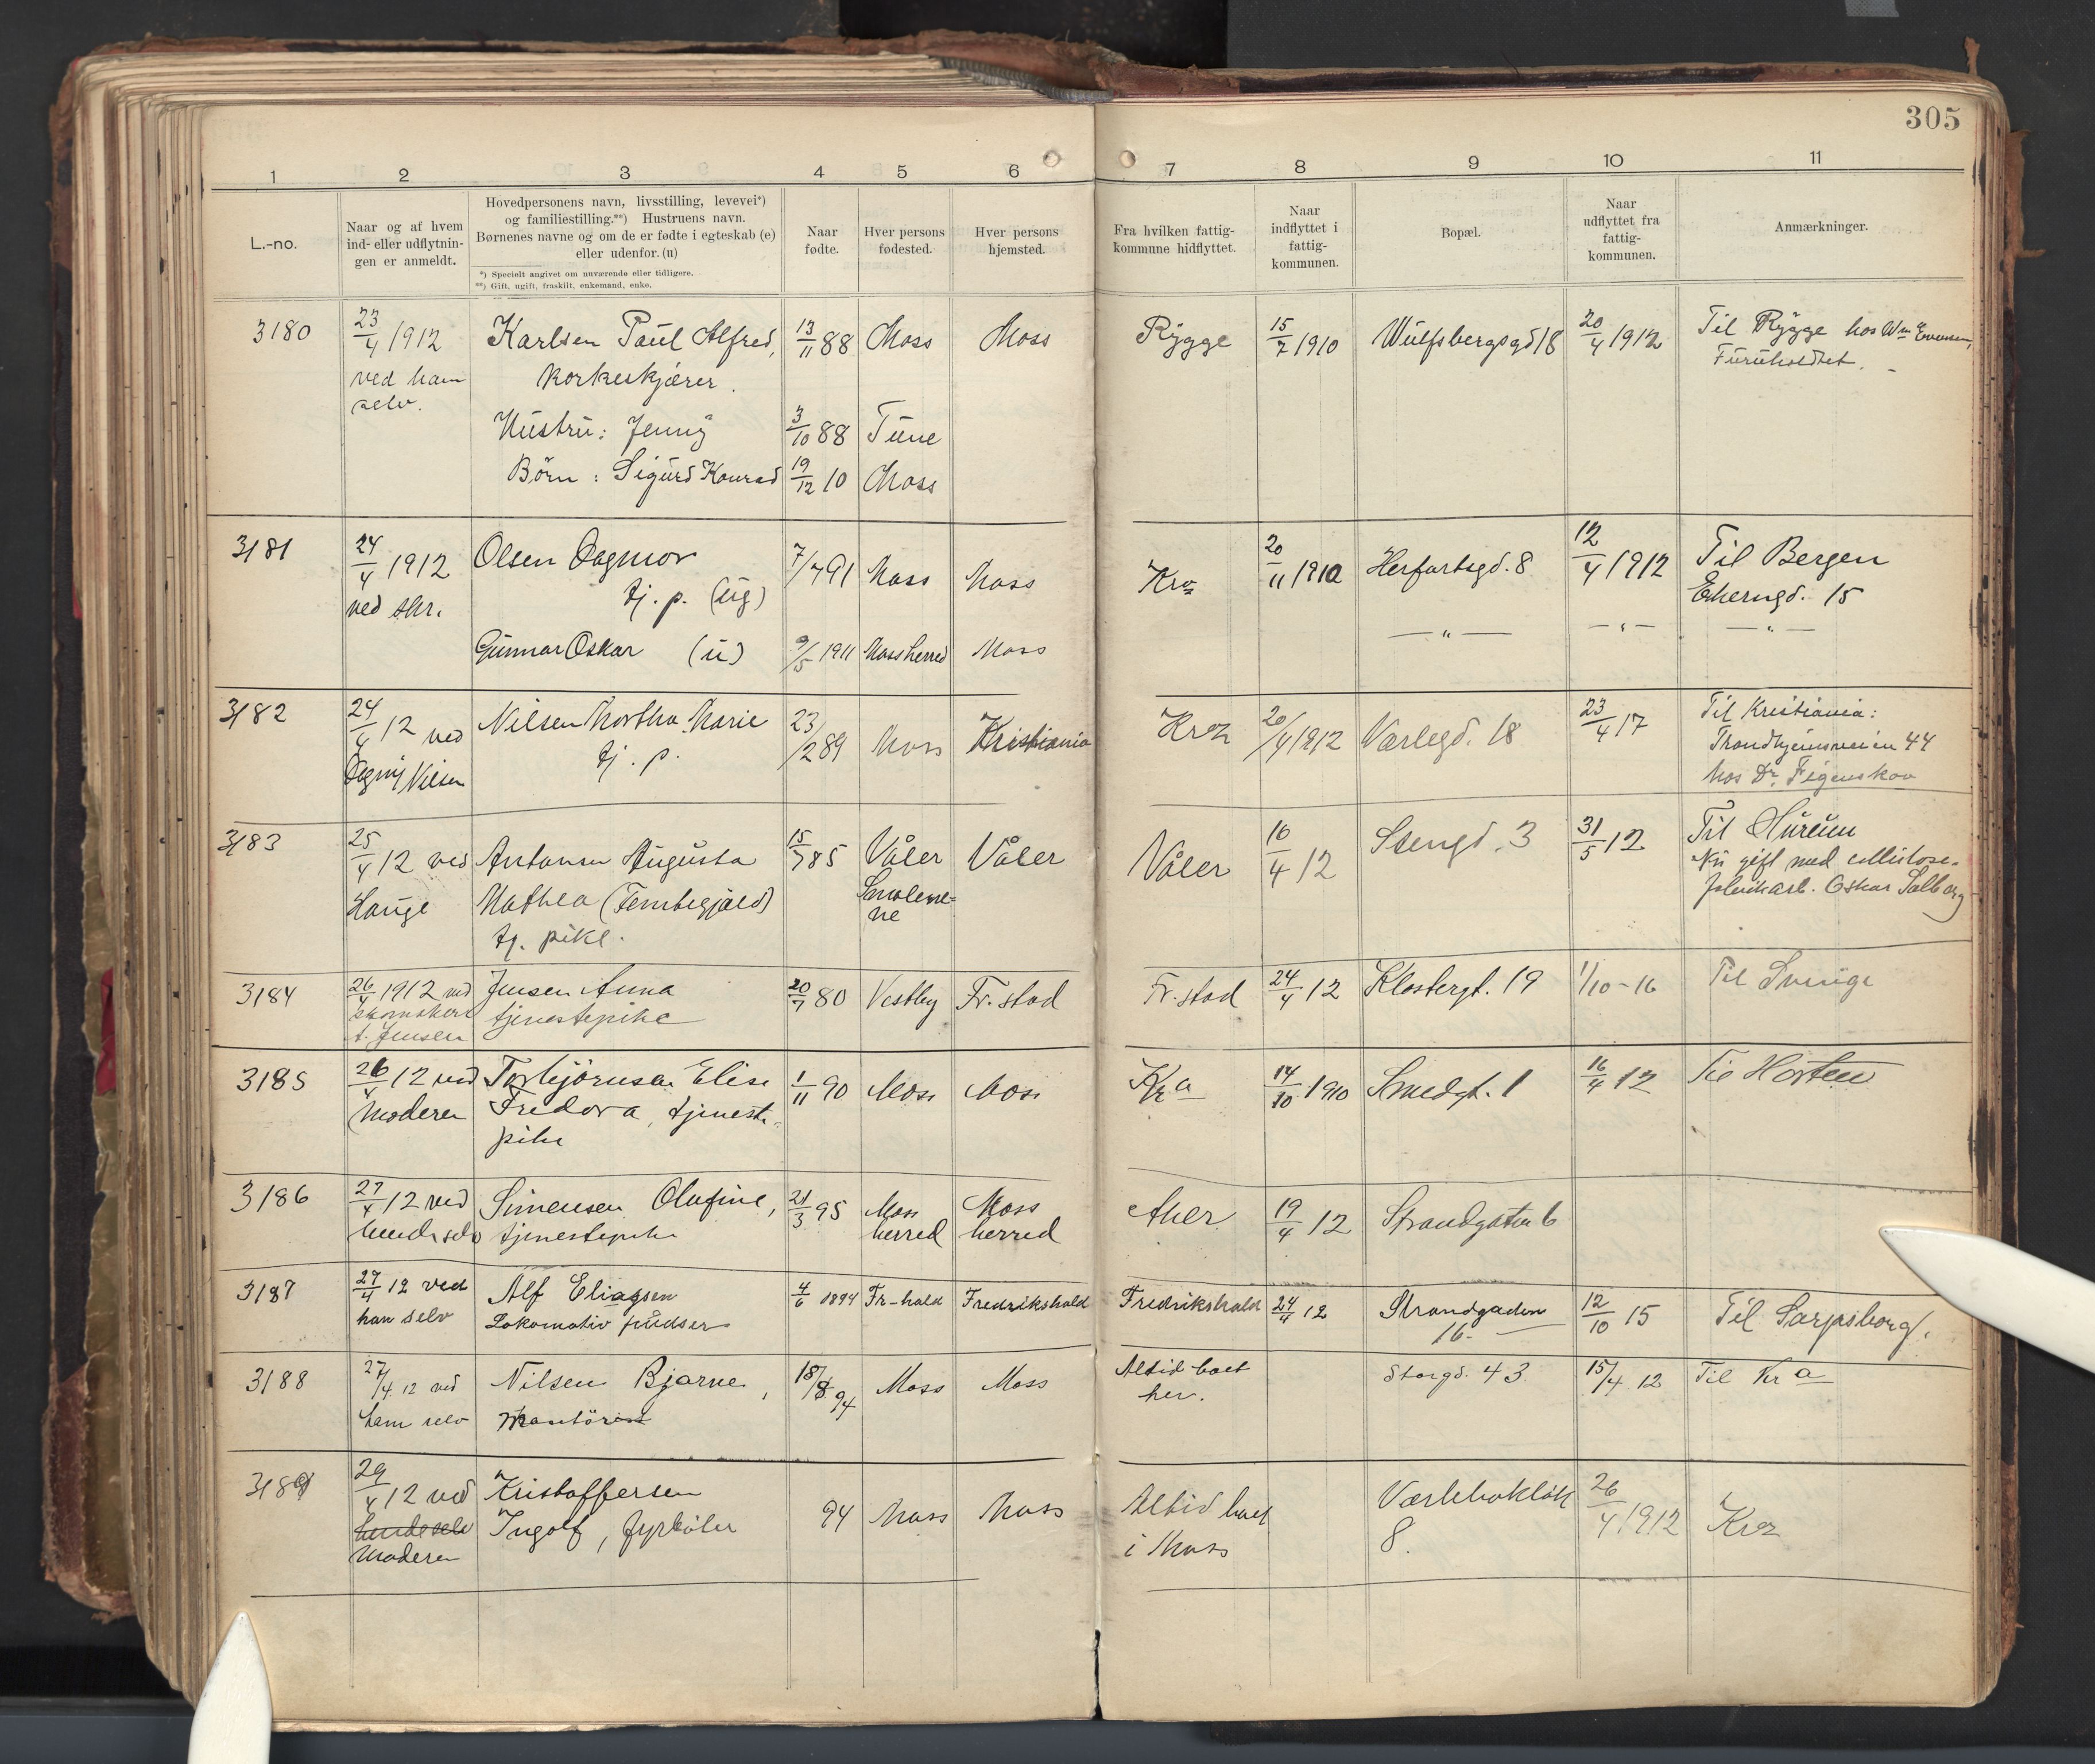 305
1 2 3 4 5 6 7 8 9 10 11
L.-no.
Naar og af hvem
ind- eller udflytnin-
gen er anmeldt.
Hovedpersonens navn, livsstilling, levevei*)
og familiestilling.**) Hustruens navn.
Børnenes navne og om de er fødte i egteskab (e)
eller udenfor. (u)
*) Specielt angivet om nuværende eller tidligere.
**) Gift, ugift, fraskilt, enkemand, enke.
Naar
fødte.
Hver persons
fødested.
Hver persons
hjemsted.
Fra hvilken fattig-
kommune hidflyttet.
Naar
indflyttet i
fattig-
kommunen.
Bopæl.
Naar
udflyttet fra
fattig-
kommunen.
Anmærkninger.
3180 23/4 1912 Karlsen Paul Alfred, 13/11 88 Moss Moss Rygge 15/7 1910 Wulfsbergsgd 18 20/4 1912 Til Rygge hos Wm Evensen,
ved ham Korkeskjærer. Furuholdtet.
selv.
Hustru: Jenny 3/10 88 Tune
Børn: Sigurd Konrad 19/12 10 Moss
3181 24/4 1912 Olsen Dagmor 7/7 91 Moss Moss Kra 20/11 1910 Herfartsgd. 8 12/4 1912 Til Bergen
ved skr. tj. p. (ug) Ekerngd. 15
Gunnar Oskar (u) 9/5 1911 Moss herred Moss —"— —"— —"—
3182 24/4 12 ved Nilsen Martha Marie 23/2 89 Moss Kristiania Kra 20/4 1912 Varlegd. 18 23/4 17 Til Kristiania:
Dagny Nilsen tj. p. Trondhjemsveien 44
hos Dr. Figenskou
3183 25/4 12 ved Antonsen Augusta 15/7 85 Våler Våler Våler 16/4 12 Stengd. 3 31/5 12 Til Hurum
Hauge Mathea (Tembegjæld) Smolene-
ne Nu gift med cellulose-
tj. pike. fabrikarb. Oskar Solberg
3184 26/4 1912 ved Jensen Anna 20/7 80 Vestby Fr.stad Fr.stad 24/4 12 Klostergt. 19 1/10-16 Til Sverige
skomaker tjenestepike
A. Jensen
3185 26/4 12 ved Torbjørnsen Elise 1/11 90 Moss Moss Kra 14/10 1910 Smedgt. 1 16/4 12 Til Horten
Moderen Fredora, tjeneste-
pike
3186 27/4 12 ved Simensen Olufine, 21/3 95 Moss
herred Moss
herred Aker 19/4 12 Strandgaten 6
hende selv tjenestepike
3187 27/4 12 ved Alf Eliassen 4/6 1894 Fr-hald Fredrikshald Fredrikshald 24/4 12 Strandgaden
16 12/10 15 Til Sarpsborg.
han selv Lokomotiv pudser
3188 27/4 12 ved Nilsen Bjarne, 18/8 94 Moss Moss Altid boet
her. Storgd. 43 15/4 12 Til Kra
ham selv Montörist
3189 29/4 12 ved Kristoffersen 94 Moss Moss Altid boet
i Moss Værlebakløk
8. 26/4 1912 Kra
hende selv Ingolf, fyrbøter
Moderen